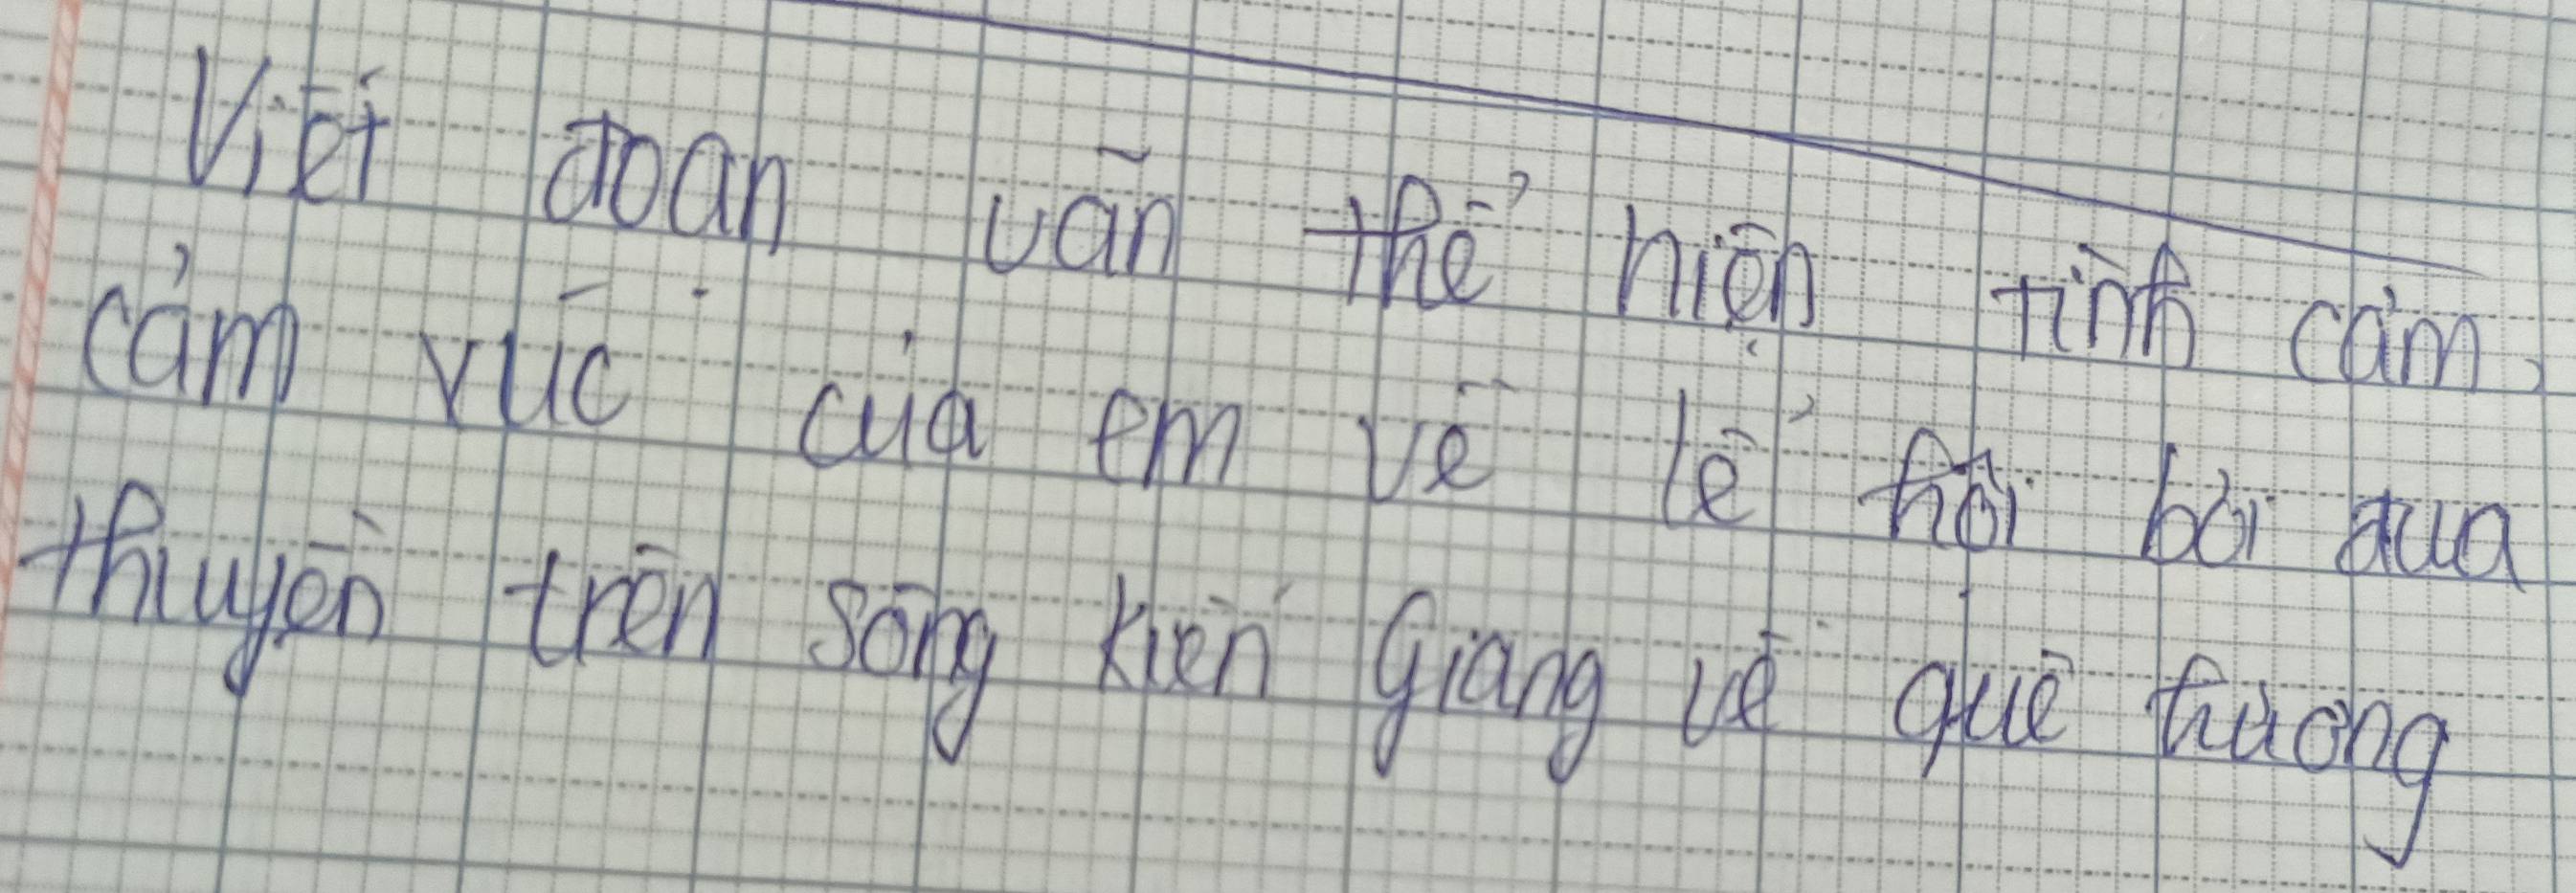 Viết đoan văn thể hiện tình cảm,
cảm xúc của em về lể hội bơi đua
thuyền trên sông Kiến Giang về quê hương